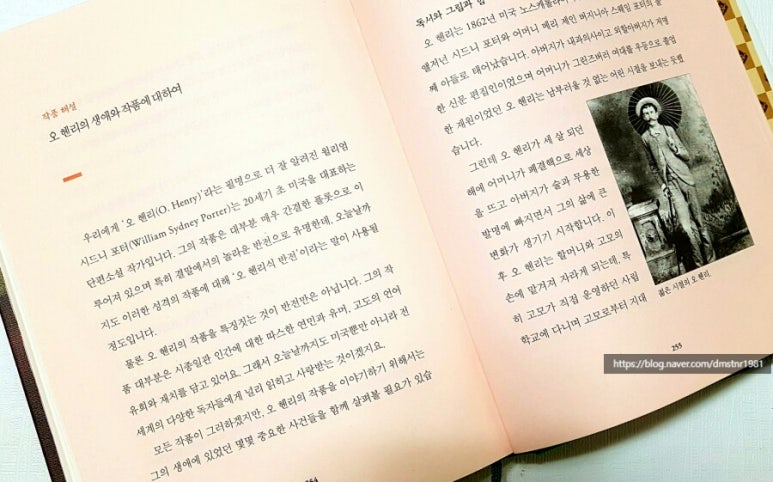 작품 해설
오 헨리의 생애와 작품에 대하여
우리에게 '오 헨리(O. Henry)'라는 필명으로 더 잘 알려진 윌리엄
시드니 포터(William Sydney Porter)는 20세기 초 미국을 대표하는
단편소설 작가입니다. 그의 작품은 대부분 매우 간결한 플롯으로 이
루어져 있으며 특히 결말에서의 놀라운 반전으로 유명한데, 오늘날까
지도 이러한 성격의 작품에 대해 '오 헨리식 반전'이라는 말이 사용될
정도입니다.
물론 오 헨리의 작품을 특징짓는 것이 반전만은 아닙니다. 그의 작
품 대부분은 시종일관 인간에 대한 따스한 연민과 유머, 고도의 언어
유희와 재치를 담고 있어요. 그래서 오늘날까지도 미국뿐만 아니라 전
세계의 다양한 독자들에게 널리 읽히고 사랑받는 것이겠지요.
모든 작품이 그러하겠지만, 오 헨리의 작품을 이야기하기 위해서는
그의 생애에 있었던 몇몇 중요한 사건들을 함께 살펴볼 필요가 있습
독서와 그림과
오 헨리는 1862년 미국 노스캐롤라이
앨저넌 시드니 포터와 어머니 메리 제인 버지니아 스웨임 포터의
째 아들로 태어났습니다. 아버지가 내과의사이고 외할아버지가 지명
한 신문 편집인이었으며 어머니가 그린즈버러 여대를 우등으로 졸업
한 재원이었던 오 헨리는 남부러울 것 없는 어린 시절을 보내는 듯했
습니다.
그런데 오 헨리가 세 살 되던
해에 어머니가 폐결핵으로 세상
을 뜨고 아버지가 술과 무용한
발명에 빠지면서 그의 삶에 큰
변화가 생기기 시작합니다. 이
후 오 헨리는 할머니와 고모의
손에 맡겨져 자라게 되는데, 특
히 고모가 직접 운영하던 사립
학교에 다니며 고모로부터 지대
젊은 시절의 오 헨리
255
https://blog.naver.com/dmstnr1981